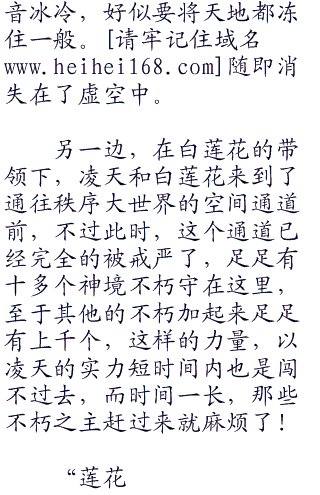 音冰冷，好似要将天地都冻
住一般。[请牢记住域名
www.heihei168.com]随即消
失在了虚空中。
另一边，在白莲花的带
领下，凌天和白莲花来到了
通往秩序大世界的空间通道
前，不过此时，这个通道已
经完全的被戒严了，足足有
十多个神境不朽守在这里，
至于其他的不朽加起来足足
有上千个，这样的力量，以
凌天的实力短时间内也是闯
不过去，而时间一长，那些
不朽之主赶过来就麻烦了！
“莲花